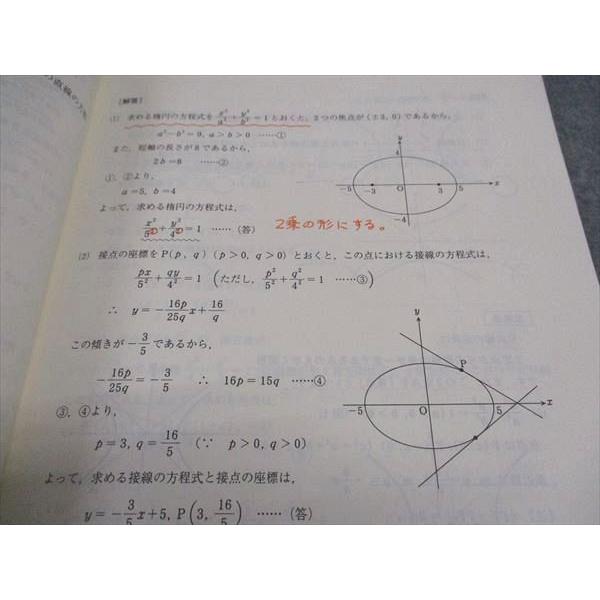 [解答]
(1) 求める楕円の方程式を x²/a²+y²/b²=1 とおくと，2つの焦点が(±3, 0)であるから，
a²-b²=9, a>b>0 ……①
また，短軸の長さが8であるから，
2b=8 ……②
①，②より，
a=5, b=4
よって，求める楕円の方程式は，
x²/5²+y²/4²=1 ……(答) 2乗の形にする。
y
4
-5 -3 O 3 5 x
-4
(2) 接点の座標をP(p, q) (p>0, q>0) とおくと，この点における接線の方程式は，
px/5²+qy/4²=1 (ただし，p²/5²+q²/4²=1 ……③)
∴ y=-16p/25q x+16/q
この傾きが -3/5 であるから，
-16p/25q=-3/5 ∴ 16p=15q ……④
③，④より，
p=3, q=16/5 (∵ p>0, q>0)
よって，求める接線の方程式と接点の座標は，
y=-3/5 x+5, P(3, 16/5) ……(答)
y
P
-5 O 5 x